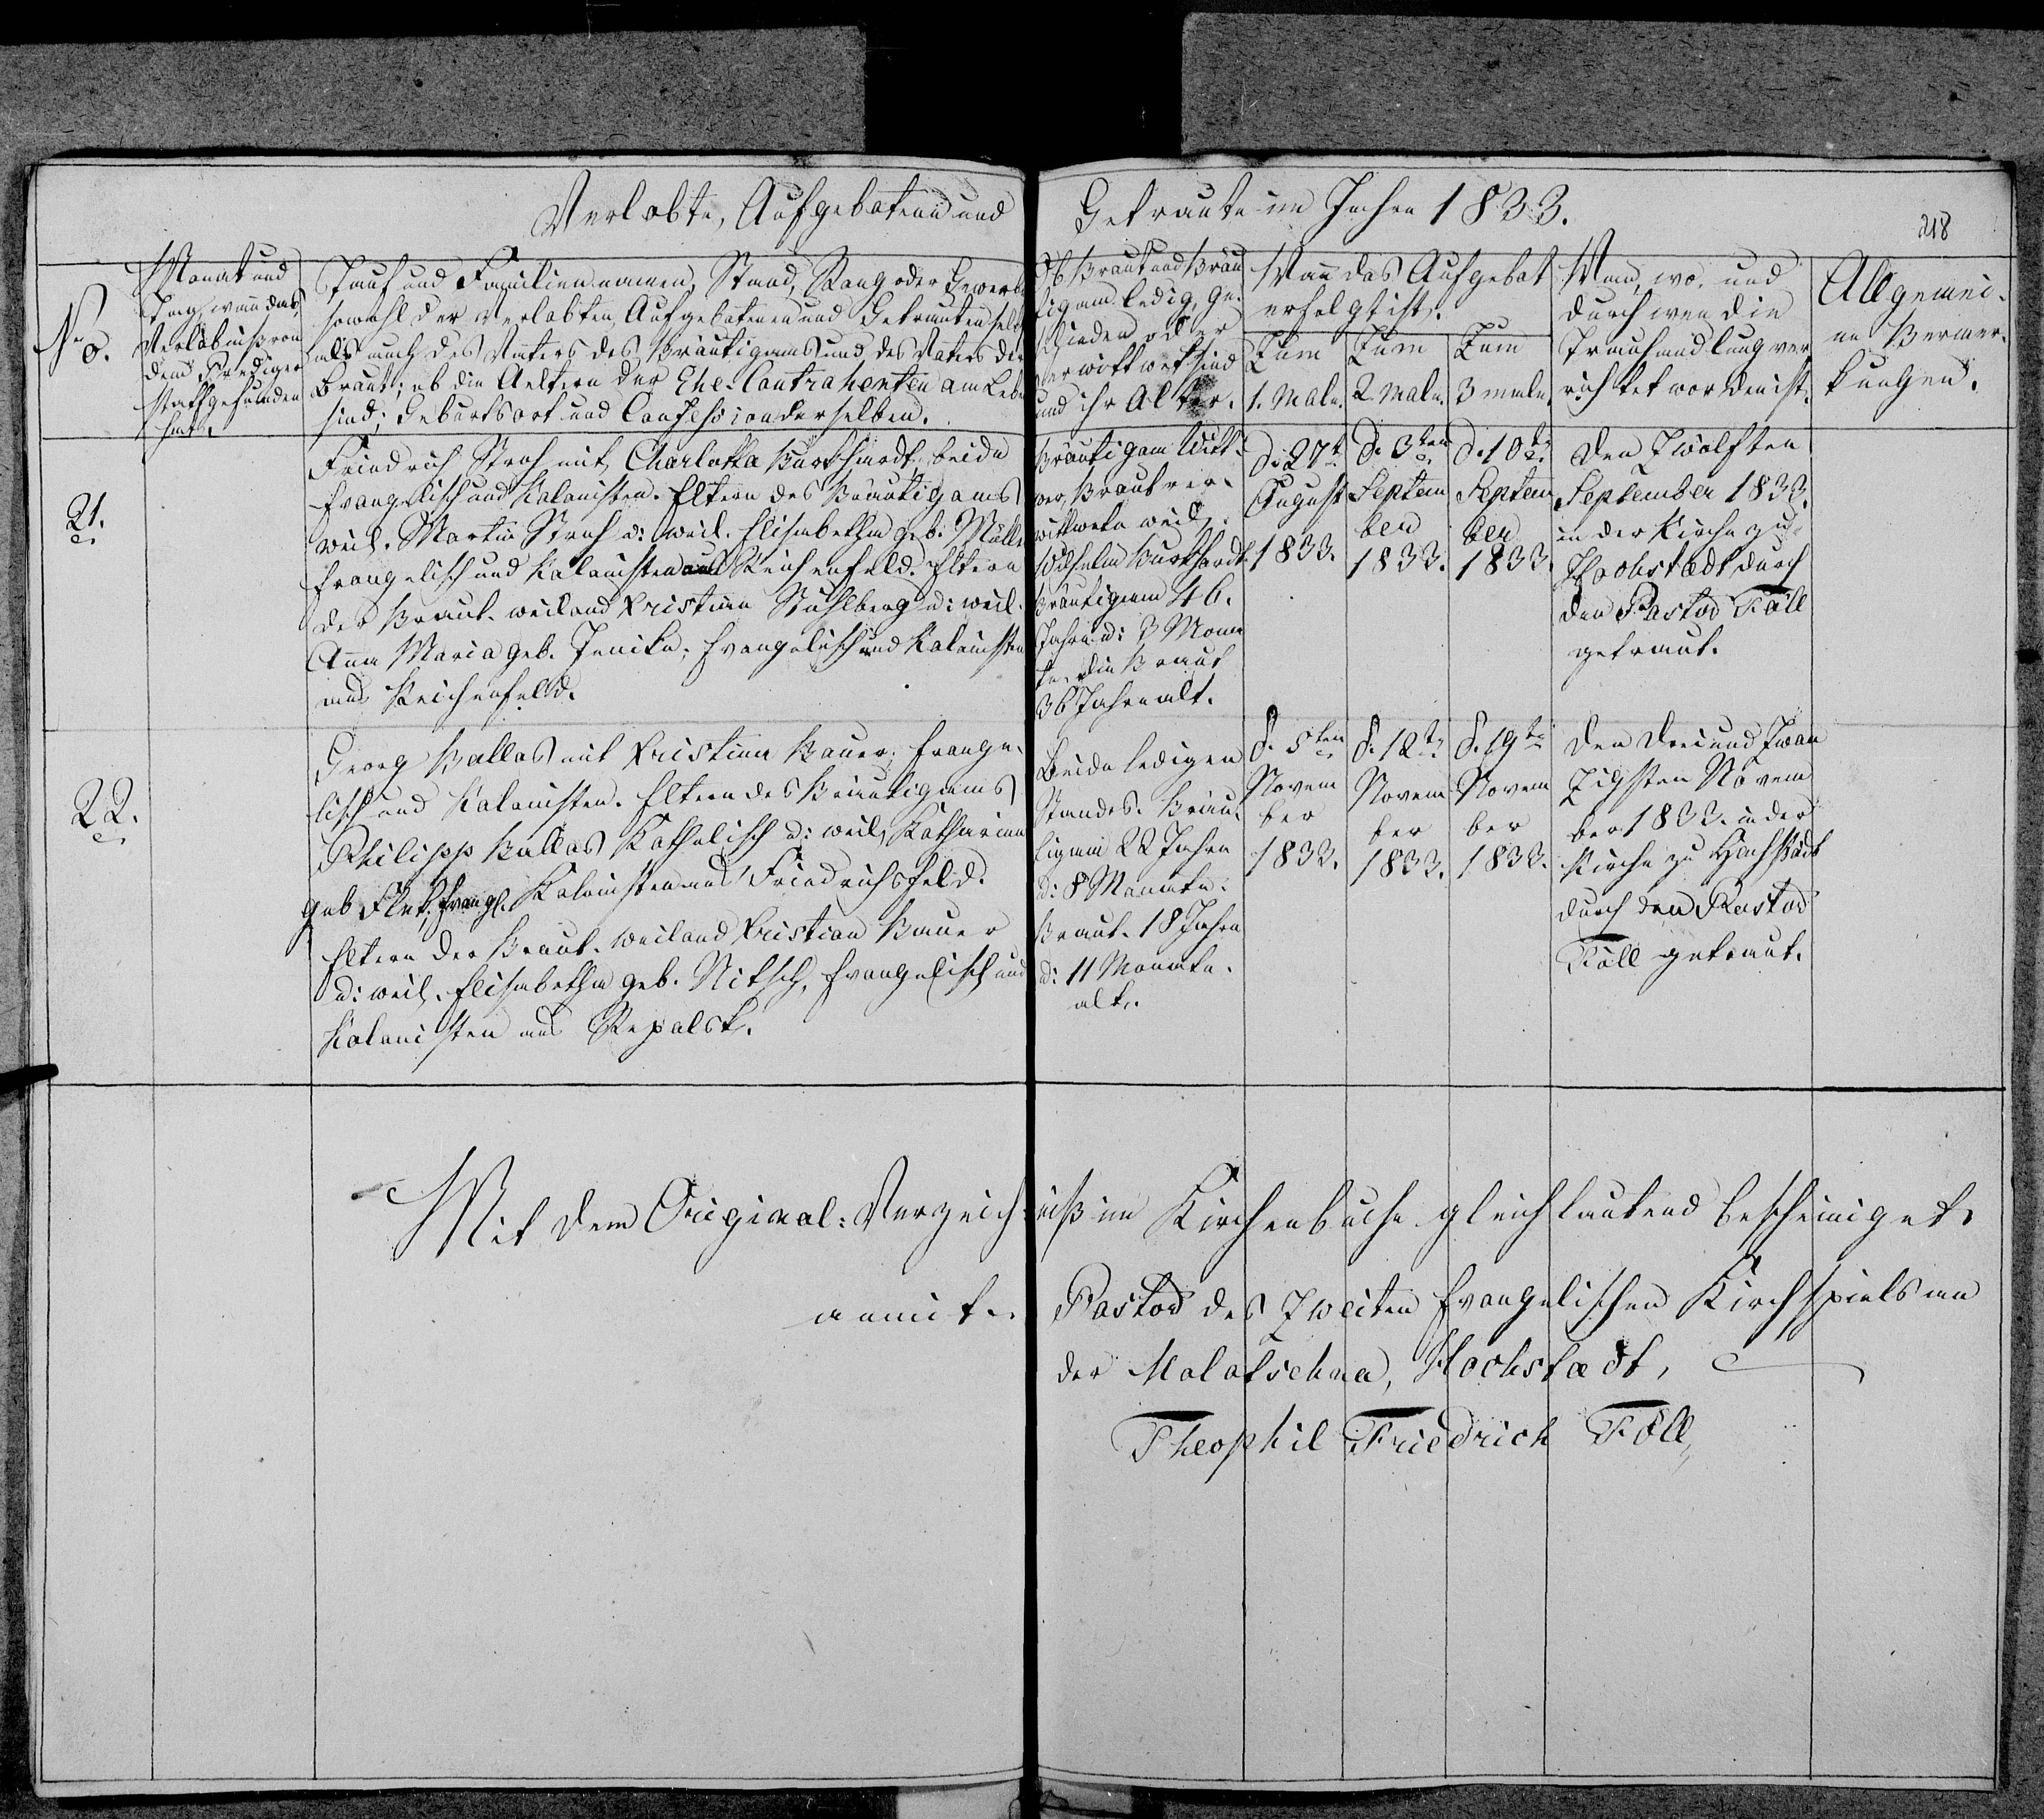 Verlobte, Aufgebotene und Getraute im Jahre 1833.
218
No.
Monat und
Tag, wann das
Verlöbniß von
dem Prediger
stattgefunden
hat.
Tauf und Familiennamen, Stand, Rang oder Gewerbe
sowohl der Verlobten, Aufgebotenen und Getrauten selbst
als auch des Vaters des Bräutigams und des Vaters der
Braut; ob die Aeltern der Ehe-Contrahenten am Leben
sind; Geburtsort und Confession derselben.
Ob Braut und Bräu
tigam ledig, ge-
schieden oder
verwittwet sind
und ihr Alter.
Wan das Aufgebot
erfolgt ist.
Zum
1. Male.
Zum
2 Male.
Zum
3 male.
Wan, wo, und
durch wen die
Trauhandlung ver
richtet worden ist.
Allgemei-
ne Bemer-
kungen.
21.
Friedrich Stroh mit Charlotta Burkhardt, beide
Evangelisch und Kolonisten. Eltern des Bräutigams
weil. Martin Stroh u: weil. Elisabetha geb. Müller
Evangelisch und Kolonisten aus Reichenfeld. Eltern
der Braut. weiland Kristian Stuhlberg u: weil.
Anna Maria geb. Jenike, Evangelisch und Kolonisten
aus Reichenfeld.
Bräutigam Witt-
wer, Braut ver-
wittwete weil.
Wilhelm Burkhardt.
Bräutigam 46.
Jahre u: 3 Mona
te, die Braut
36 Jahre alt.
d. 27t
August
1833.
d. 3ten
Septem
ber
1833.
d. 10te
Septem
ber
1833.
Den Zwölften
September 1833.
in der Kirche zu
Hochstädt durch
den Pastor Föll
getraut.
22.
Georg Ballas mit Kristina Bauer, Evange-
lisch und Kolonisten. Eltern des Bräutigams
Philipp Ballas Katholisch u: weil. Katharina
geb Flek, Evangl. Kolonisten aus Friedrichsfeld.
Eltern der Braut. weiland Kristian Bauer
u: weil. Elisabetha geb. Nitsch, Evangelisch und
Kolonisten aus Repalsk.
Beide ledigen
Standes. Bräu-
tigam 22 Jahre
u: 8 Monate.
Braut. 18 Jahre
u: 11 Monate.
alt.
d. 5ten
Novem
ber
1833.
d. 12te
Novem
ber
1833.
d. 19te
Novem
ber
1833.
Den drei und Zwan
zigsten Novem
ber 1833. in der
Kirche zu Hochstädt
durch den Pastor
Föll getraut.
Mit dem Original-Verzeichniß im Kirchenbuche gleichlautend bescheiniget
anmit. Pastor des Zweiten Evangelischen Kirchspiels an
der Molotschna, Hochstadt,
Theophil Friedrich Föll